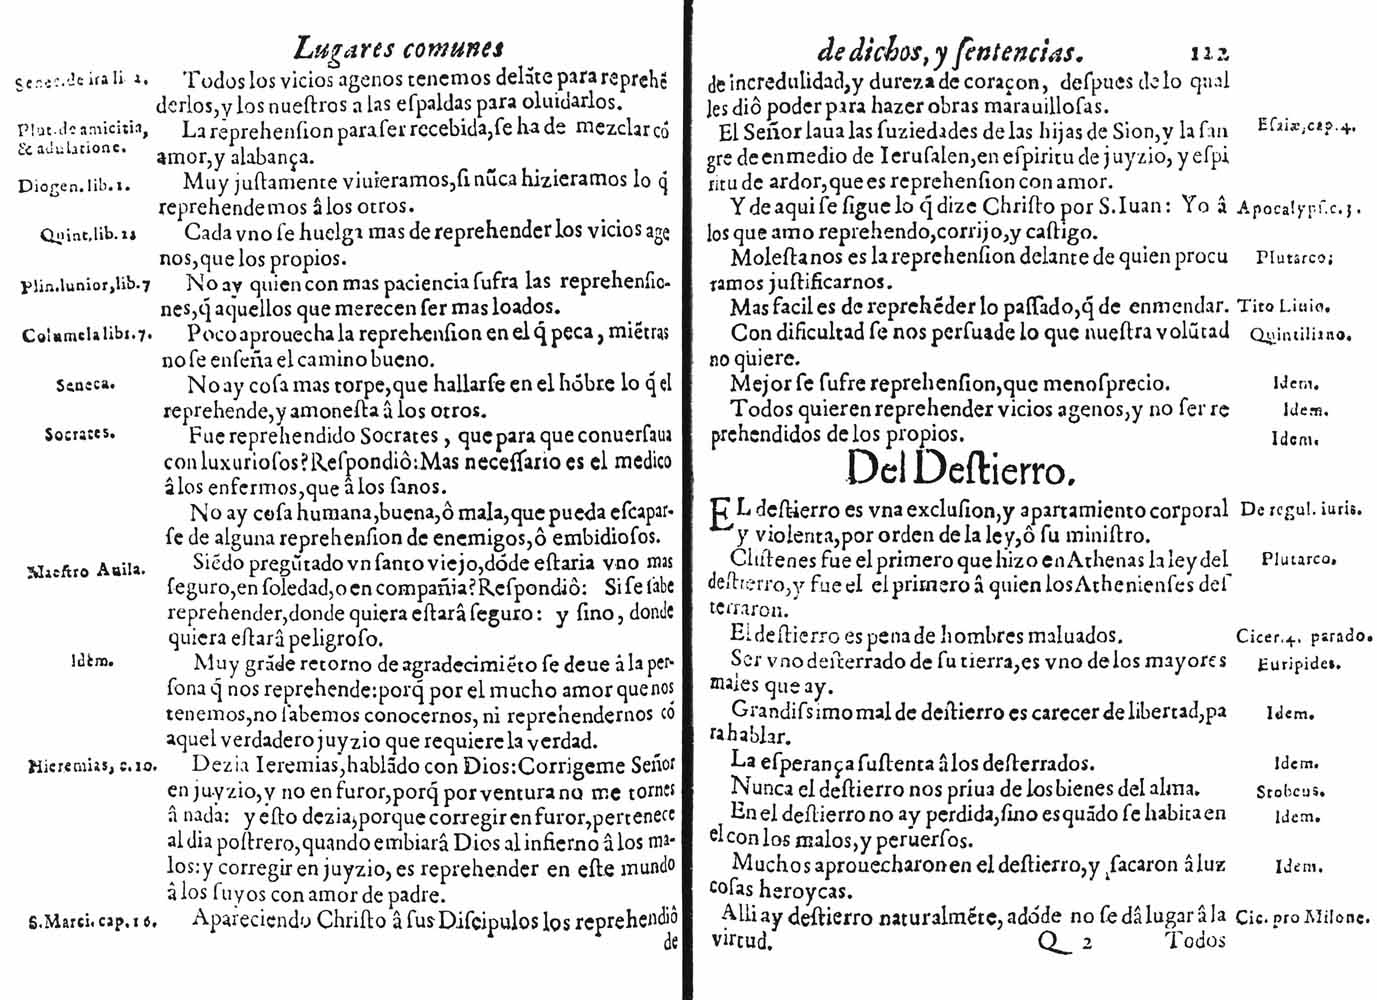 Lugares comunes
Senec. de ira li. 2. Todos los vicios agenos tenemos delãte para reprehẽ
derlos, y los nueſtros a las eſpaldas para oluidarlos.
Plut. de amicitia, La reprehenſion para ſer recebida, ſe ha de mezclar cõ
& adulatione. amor, y alabança.
Diogen. lib. 1. Muy juſtamente viuieramos, ſi nũca hizieramos lo q̃
reprehendemos â los otros.
Quint. lib. 11 Cada vno ſe huelga mas de reprehender los vicios age
nos, que los propios.
Plin. Iunior, lib. 7 No ay quien con mas paciencia ſufra las reprehenſio-
nes, q̃ aquellos que merecen ſer mas loados.
Columela lib 1. 7. Poco aprouecha la reprehenſion en el q̃ peca, miẽtras
no ſe enſeña el camino bueno.
Seneca. No ay coſa mas torpe, que hallarſe en el hõbre lo q̃ el
reprehende, y amoneſta â los otros.
Socrates. Fue reprehendido Socrates, que para que conuerſaua
con luxurioſos? Reſpondiô: Mas neceſſario es el medico
â los enfermos, que â los ſanos.
No ay coſa humana, buena, ô mala, que pueda eſcapar-
ſe de alguna reprehenſion de enemigos, ô embidioſos.
Maeſtro Auila. Siẽdo pregũtado vn ſanto viejo, dõde eſtaria vno mas
ſeguro, en ſoledad, o en compañia? Reſpondiô: Si ſe ſabe
reprehender, donde quiera eſtarâ ſeguro: y ſino, donde
quiera eſtarâ peligroſo.
Idem. Muy grãde retorno de agradecimiẽto ſe deue â la per-
ſona q̃ nos reprehende: porq̃ por el mucho amor que nos
tenemos, no ſabemos conocernos, ni reprehendernos cõ
aquel verdadero juyzio que requiere la verdad.
Hieremias, c. 10. Dezia Ieremias, hablãdo con Dios: Corrigeme Señor
en juyzio, y no en furor, porq̃ por ventura no me tornes
â nada: y eſto dezia, porque corregir en furor, pertenece
al dia poſtrero, quando embiarâ Dios al infierno â los ma-
los: y corregir en juyzio, es reprehender en eſte mundo
â los ſuyos con amor de padre.
S. Marci. cap. 16. Apareciendo Chriſto â ſus Diſcipulos los reprehendiô
de
de dichos, y ſentencias. 122
de incredulidad, y dureza de coraçon, deſpues de lo qual
les diô poder para hazer obras marauilloſas.
El Señor laua las ſuziedades de las hijas de Sion, y la ſan Eſaiæ, cap. 4.
gre de en medio de Ieruſalen, en eſpiritu de juyzio, y eſpi
ritu de ardor, que es reprehenſion con amor.
Y de aqui ſe ſigue lo q̃ dize Chriſto por S. Iuan: Yo â Apocalypſ. c. 3.
los que amo reprehendo, corrijo, y caſtigo.
Moleſta nos es la reprehenſion delante de quien procu Plutarco;
ramos juſtificarnos.
Mas facil es de reprehẽder lo paſſado, q̃ de enmendar. Tito Liuio.
Con dificultad ſe nos perſuade lo que nueſtra volũtad Quintiliano.
no quiere.
Mejor ſe ſufre reprehenſion, que menoſprecio. Idem.
Todos quieren reprehender vicios agenos, y no ſer re Idem.
prehendidos de los propios. Idem.
Del Deſtierro.
EL deſtierro es vna excluſion, y apartamiento corporal De regul. iuris.
y violenta, por orden de la ley, ô ſu miniſtro.
Cliſtenes fue el primero que hizo en Athenas la ley del Plutarco.
deſtierro, y fue el el primero â quien los Athenienſes deſ
terraron.
El deſtierro es pena de hombres maluados. Cicer. 4. parado.
Ser vno deſterrado de ſu tierra, es vno de los mayores Euripides.
males que ay.
Grandiſsimo mal de deſtierro es carecer de libertad, pa Idem.
ra hablar.
La eſperança ſuſtenta â los deſterrados. Idem.
Nunca el deſtierro nos priua de los bienes del alma. Stobeus.
En el deſtierro no ay perdida, ſino es quãdo ſe habita en Idem.
el con los malos, y peruerſos.
Muchos aprouecharon en el deſtierro, y ſacaron â luz Idem.
coſas heroycas.
Alli ay deſtierro naturalmẽte, adõde no ſe dâ lugar â la Cic. pro Milone.
virtud. Q 2 Todos